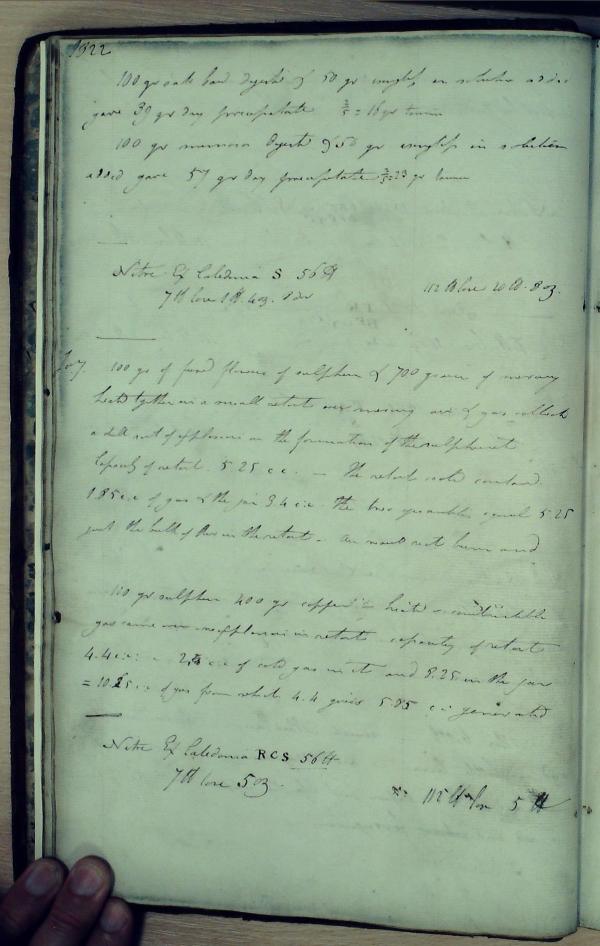 1822
100 gr oak bark digested 50 gr in solution added
gave 39 gr dry precipitate 2/5 = 16 gr tannin
100 gr digested 50 gr in solution
added gave 57 gr dry precipitate 2/5 = 23 gr tannin
Nitre Ex Caledonia S 56 lb
7 lb lose 1 lb 4 oz. 112 lb lose 20 lb. 8 oz.
100 gr of fused flowers of sulphur & 700 grains of mercury
heated together in a small retort over mercury air & gas collected
a dull sort of explosion on the formation of the sulphuret
Capacity of retort 5.25 c.c. — The retort cold contained
1.85 c.c. of gas & the jar 3.4 c.c. the two quantities equal 5.25
just the bulk of in the retort - air would not burn and
100 gr sulphur 400 gr copper heated - combustible
gas came over explosion in retort capacity of retort
4.4 c.c. 2. c.c. of cold gas in it and 8.25 in the jar
= 10.25 c.c. of gas from which 4.4 gives 5.85 c.c. generated
Nitre Ex Caledonia RCS 56 lb
7 lb lose 5 oz. 112 lb lose 5 lb